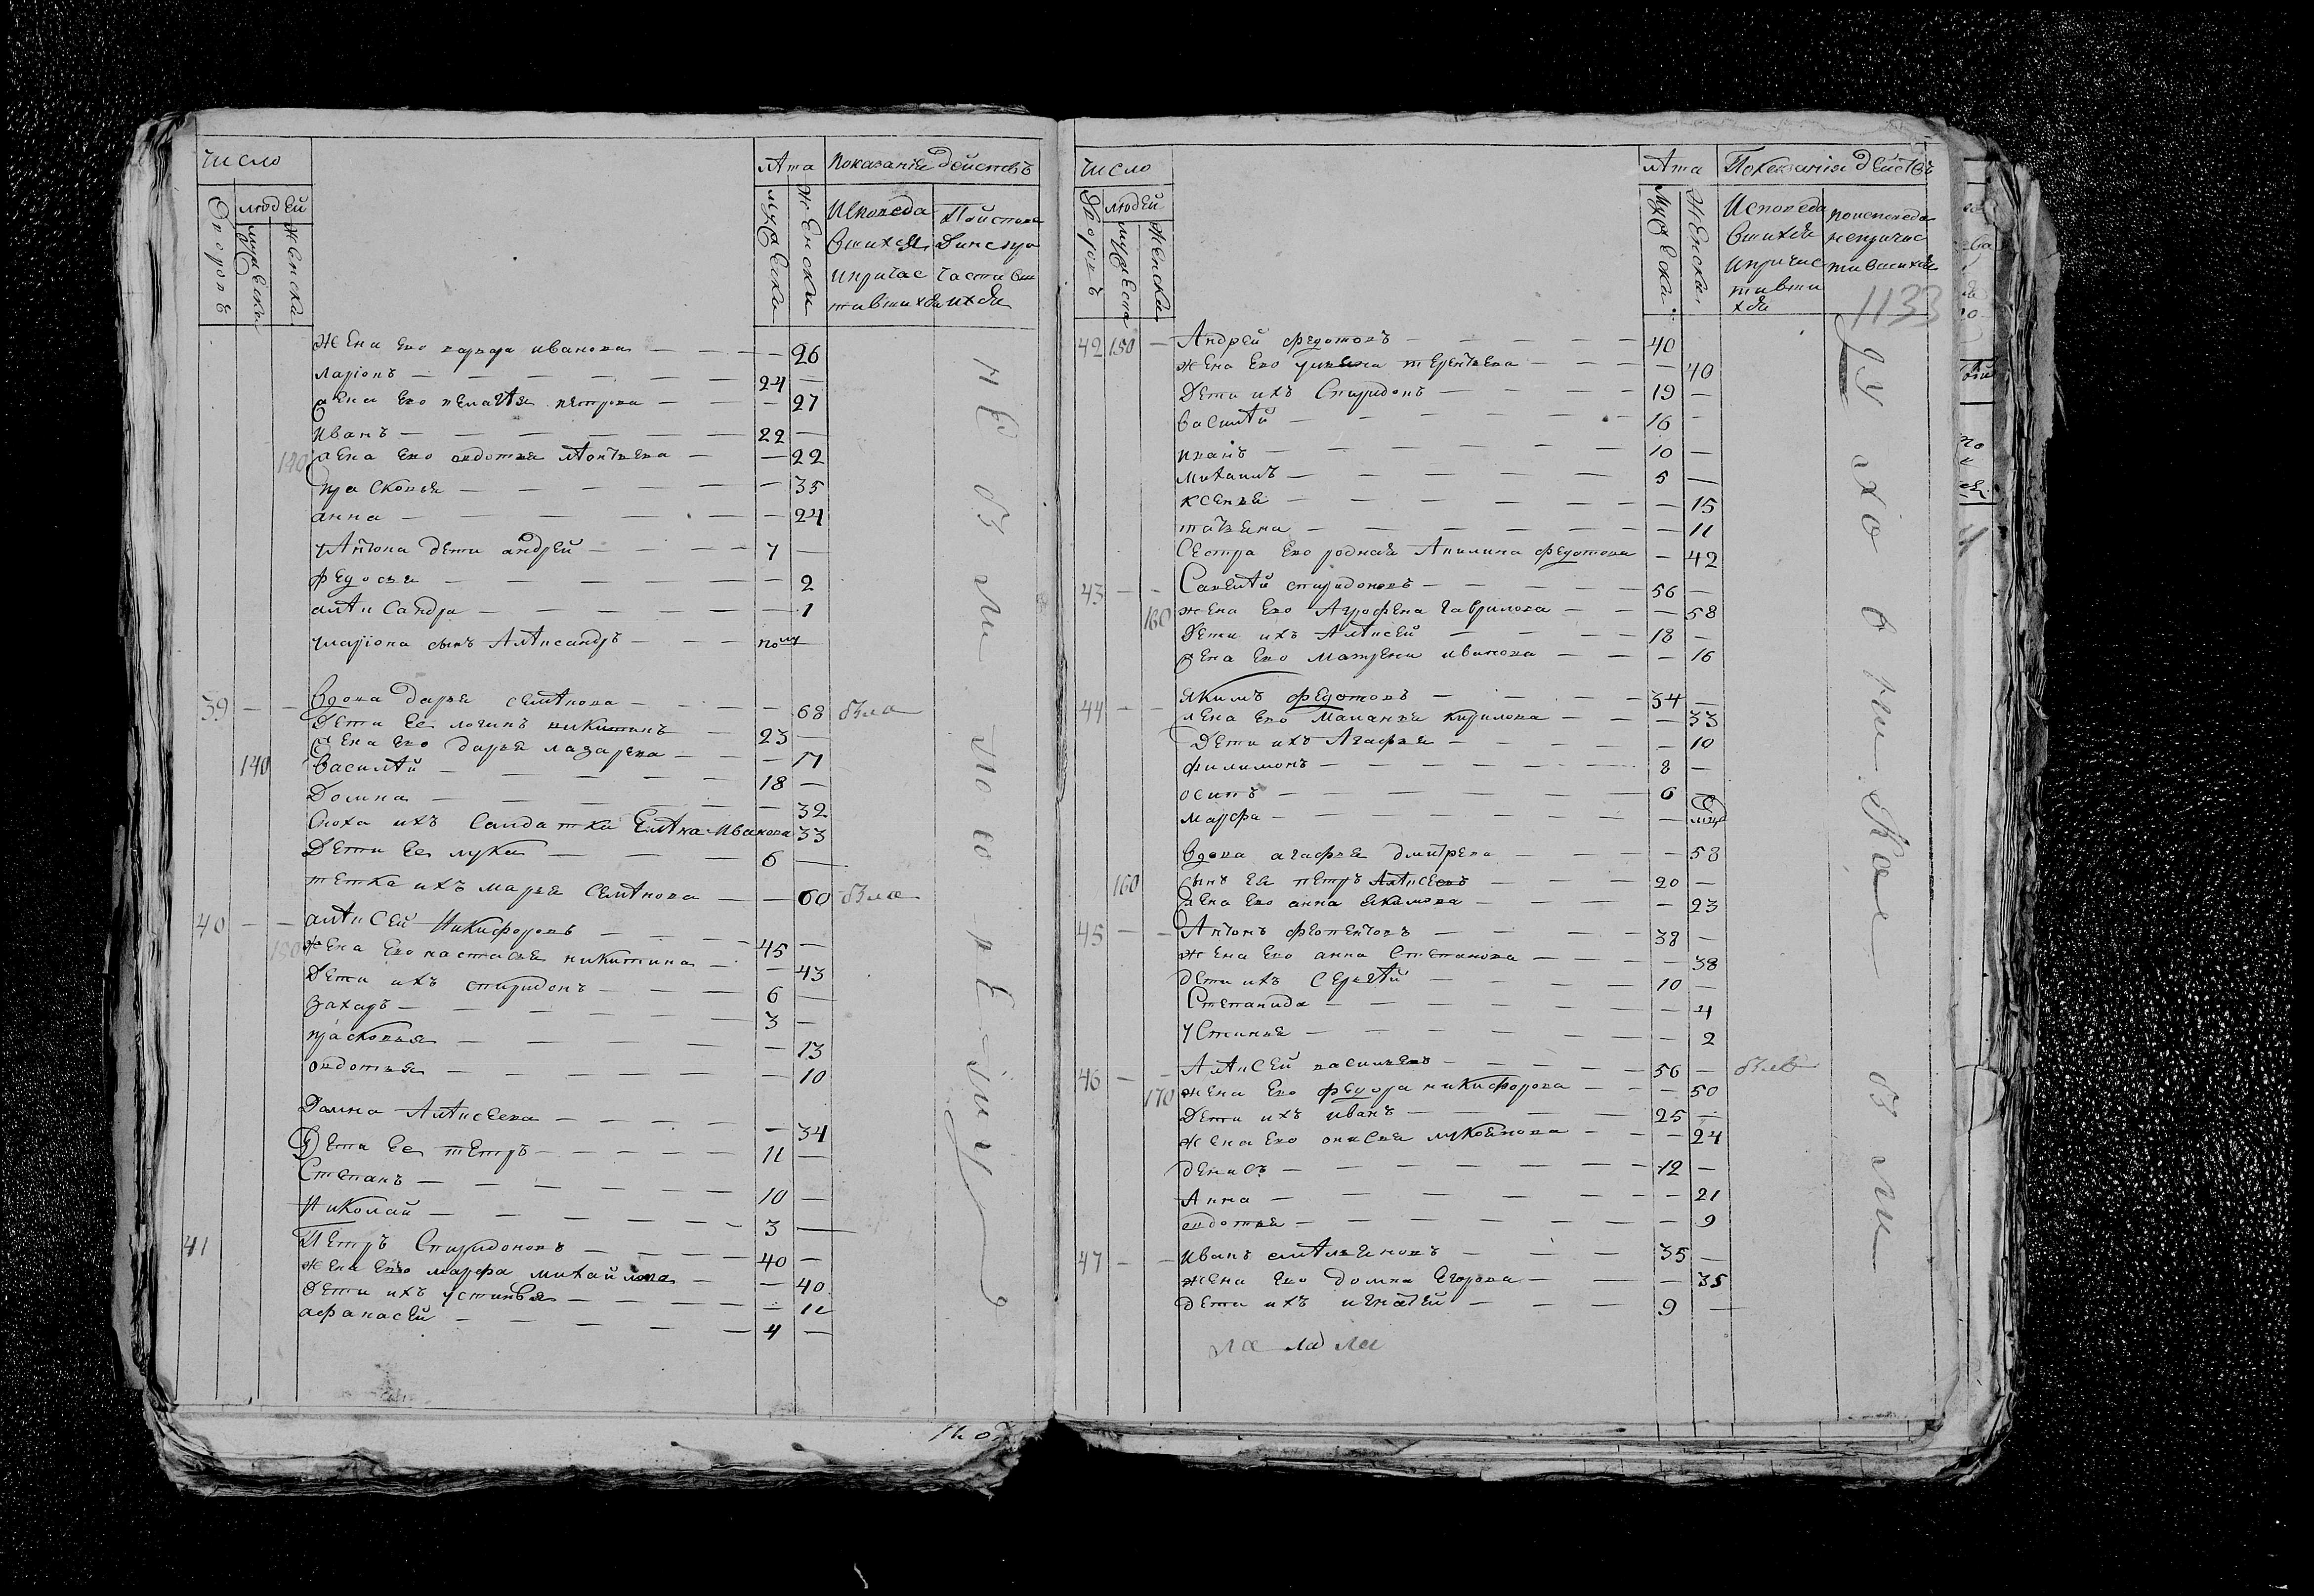 Число
Лѣта
Показания действъ
Дворовъ
людей
мужеска
женска
мужеска
женска
Исповеда
вшихся
и причас
тившихся
жена ево варвара иванова — 26
ларіонъ — 24 —
жена ево пелагѣя петрова — 27
иванъ — 22 —
жена ево овдотья лѣонтьева — 22
прасковья — 35
анна — 24
у Антона дети андрей — 7 —
федосья — 2
алѣксандра — 1
у лариона сынъ Алѣксандръ —
39 — — вдова дарья семѣнова — 68 была
дети ее логинъ никитинъ — 23 —
жена ево дарья лазарева — 17
140 василѣй — 18 —
Домна — 32
сноха ихъ салдатка Елѣна Иванова 33
Дети ее лука — 6 —
тетка ихъ марья семѣнова — 60 была
40 — — алѣксей Никифоровъ — 45 —
жена ево настасья никитина — 43
Дети ихъ спиридонъ — 6 —
захаръ — 3 —
прасковья — 13
овдотья — 10
Домна Алѣксеева — 34
Дети ее петръ — 11 —
Степанъ — 10 —
Николай — 3 —
41 Петръ Спиридоновъ — 40 —
жена ево марфа михайлова — 40
дети ихъ устинья — 11
афанасей — 4 —
не были
Число
Лѣта
Показания действъ
Дворовъ
людей
мужеска
женска
мужеска
женска
Исповеда
вшихся
и причас
тивши
хся
по исповеда
не причас
тившихся
1133
42 150 — Андрей федотовъ — 40
жена ево терентьева — 40
Дети ихъ Спиридонъ — 19 —
василѣй — 16 —
иванъ — 10 —
михаилъ — 5 —
ксенья — 15
татьяна — 11
сестра ево родная Акилина федотова — 42
43 — — Савелѣй спиридоновъ — 56 —
160 жена ево Агрофена гаврилова — 58
Дети ихъ Алѣксей — 18 —
жена ево матрена иванова — 16
44 — — якимъ федотовъ — 34 —
жена ево маланья кирилова — 33
Дети ихъ Агафья — 10
филимонъ — 8 —
осипъ — 6 —
марфа —
вдова агафья дмитрева — 58
160 сынъ ея петръ Алѣксеевъ — 20 —
жена ево анна якимова — 23
45 — — Антонъ — 38 —
жена ево анна Степанова — 38
дети ихъ Сергѣй — 10 —
Степанида — 4
устинья — 2
46 — — Алѣксей васильевъ — 56 — былъ
170 жена ево федора никифорова — 50
Дети ихъ иванъ — 25 —
жена ево анисья лукоянова — 24
денисъ — 12 —
Анна — 21
овдотья — 9
47 — — иванъ емѣльяновъ — 35 —
жена ево домна Егорова — 35
дети ихъ игнатей — 9 —
были